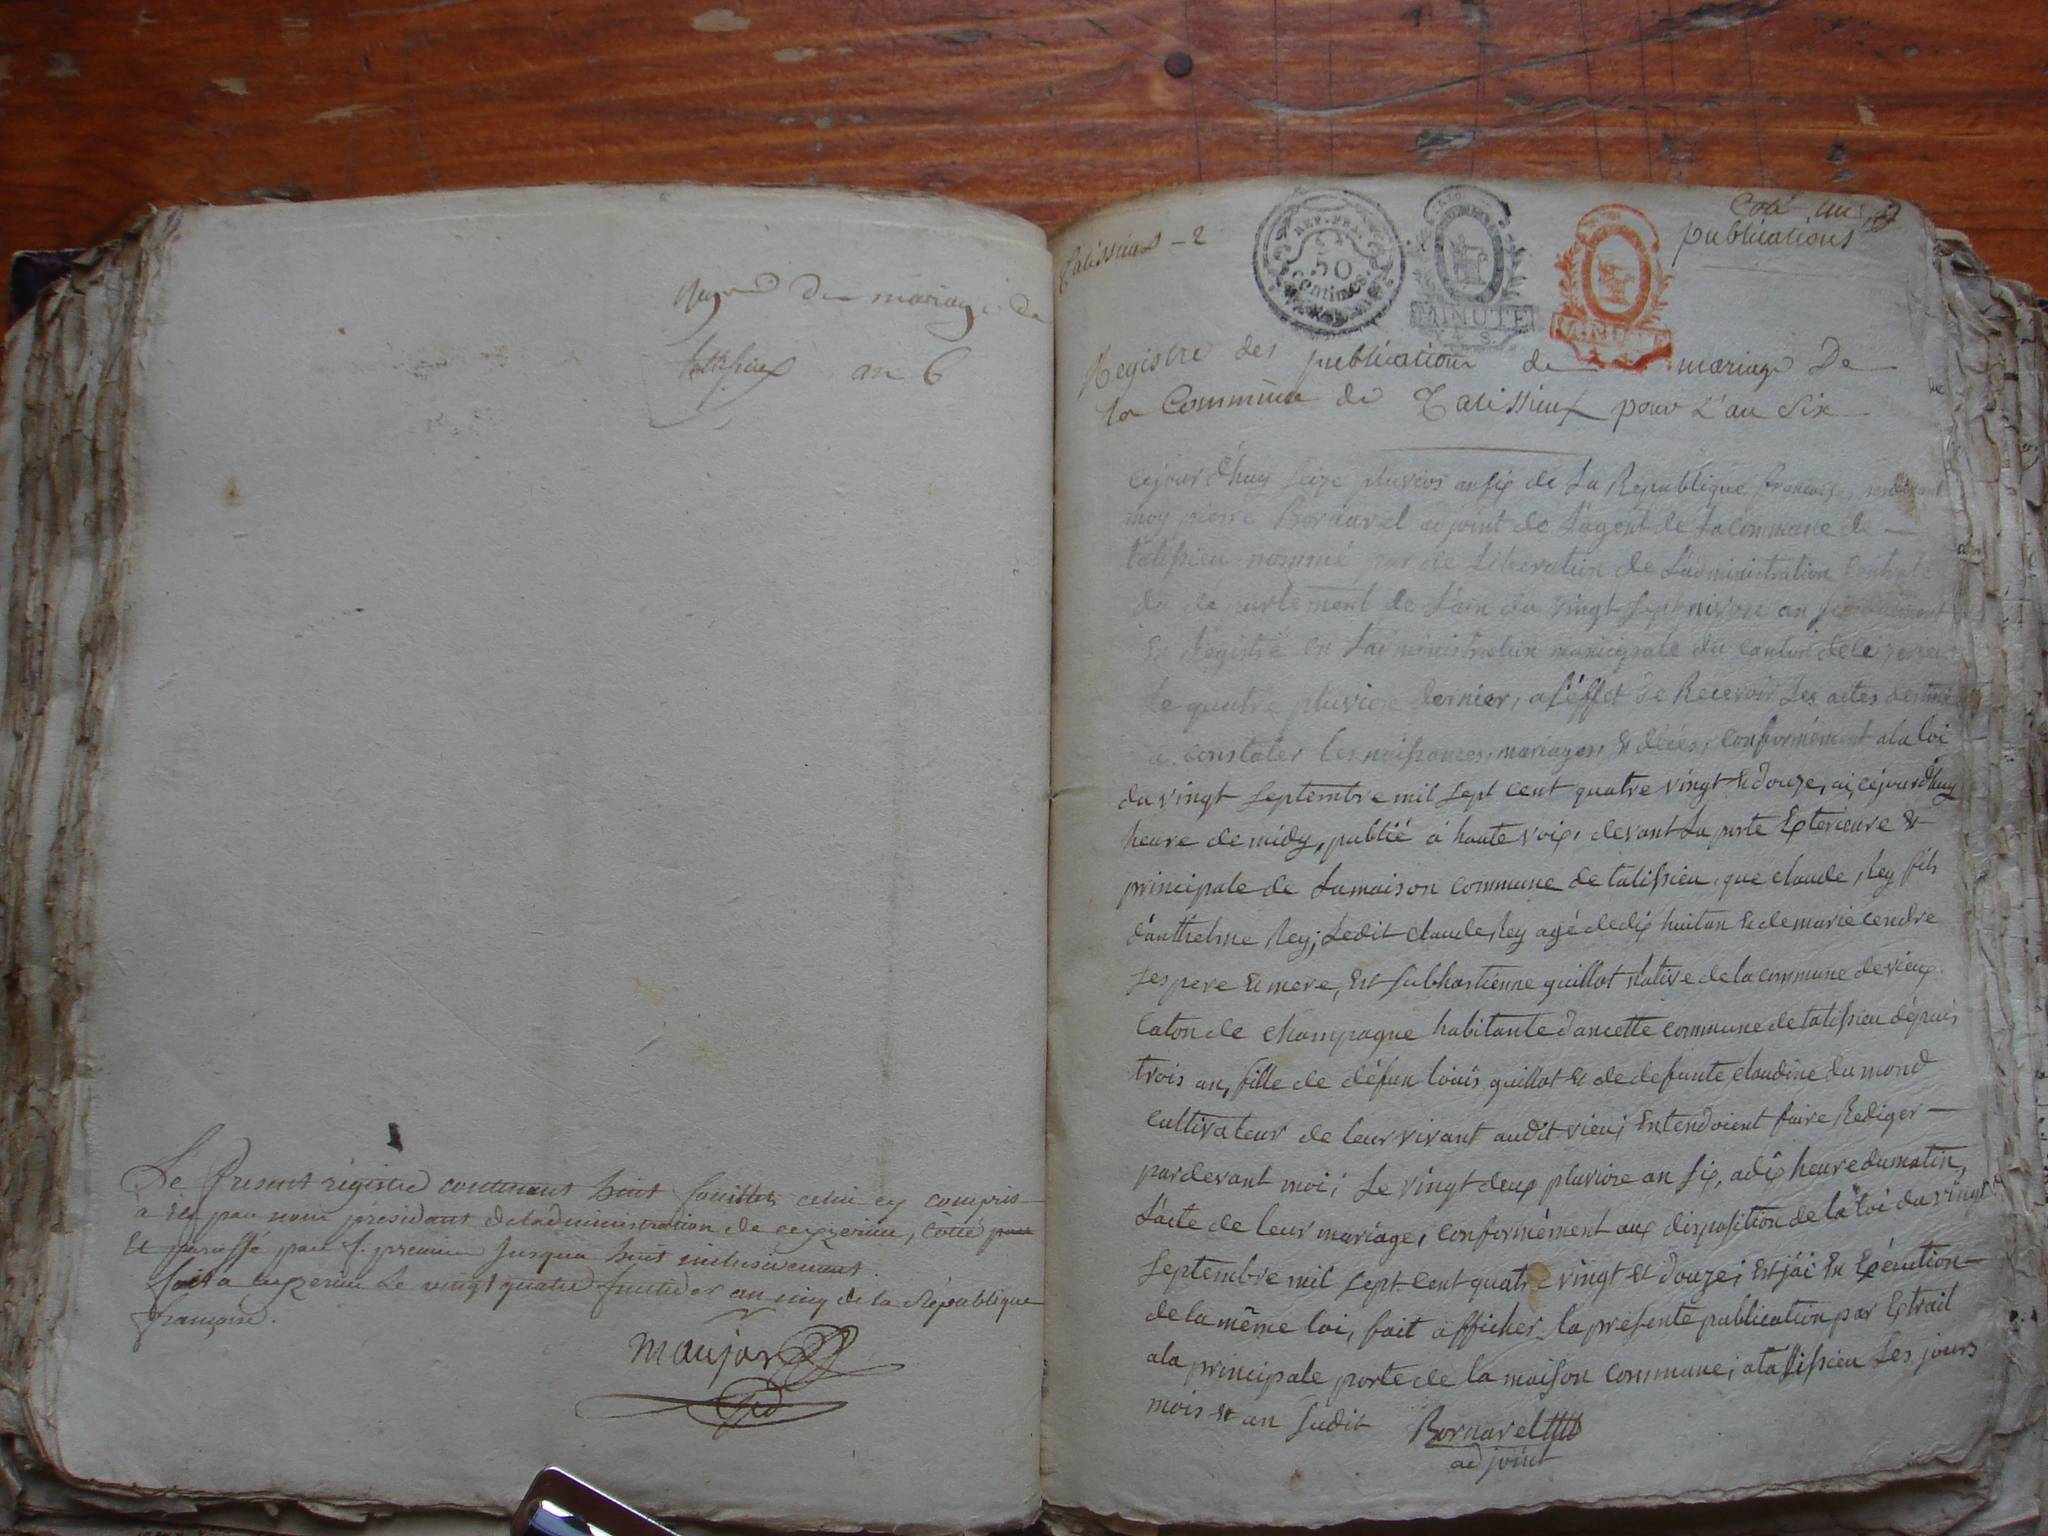 du mariage de
talissieux an 6
Le Present régistre contenant huit feuillets celui cy compris
a été par nous président de Ladministration de ceyzerieu, coté
et paraffé par f. premier jusqua huit inclusivement.
fait a ceyzerieu Le vingt quatre fructidor an cinq de la République
francoise.
Maujor
Pid
Talissieux - 2
REP. FRA.
50
Centimes
MINUTE
MINUTE
Coté un
publications
Registre des publications de mariage De
la Commune de Talissieux pour L'an Six
cejourd'huy seize pluvios an six de La Republique francoise, pardevant
moy pierre Bornarel adjoint de L'agent de La commune de
talissieu nommé par de Liberation de L'administration Centrale
du de partement de L'ain du vingt sept nivose an
En Registré en L'administration municipale du canton de ceizerieu
Le quatre pluviose dernier, a L'effet de Recevoir Les actes destiné
a constater les naissances, mariages, & décès, conformément a la loi
du vingt septembre mil sept cent quatre vingt & douze, ai, cejourd'huy
heure de midy, publié à haute voix, devant La porte Exterieure &
principale de La maison commune de talissieu, que claude Rey fils
d'anthelme Rey; Ledit claude Rey agé de dix huit an & de marie cendre
ses pere & mere, Et Sabhastienne guillot Native de la commune de vieux
Caton de champagne habitante dancette commune de talissieu dépuis
trois an, fille de défun louis guillot & de defunte claudine du mond
cultivateur de leur vivant audit vieu; Entendoient faire Rediger
pardevant moi; Le vingt deux pluviose an six, a dix heure du matin,
L'acte de leur mariage, conformément aux disposition de la loi du vingt
septembre mil sept cent quatre vingt et douze; Et j'ai En Exécution
de la même loi, fait afficher la présente publication par Extrait
a la principale porte de la maison commune; a talissieu Les jours
mois & an Sudit Bornarel
adjoint